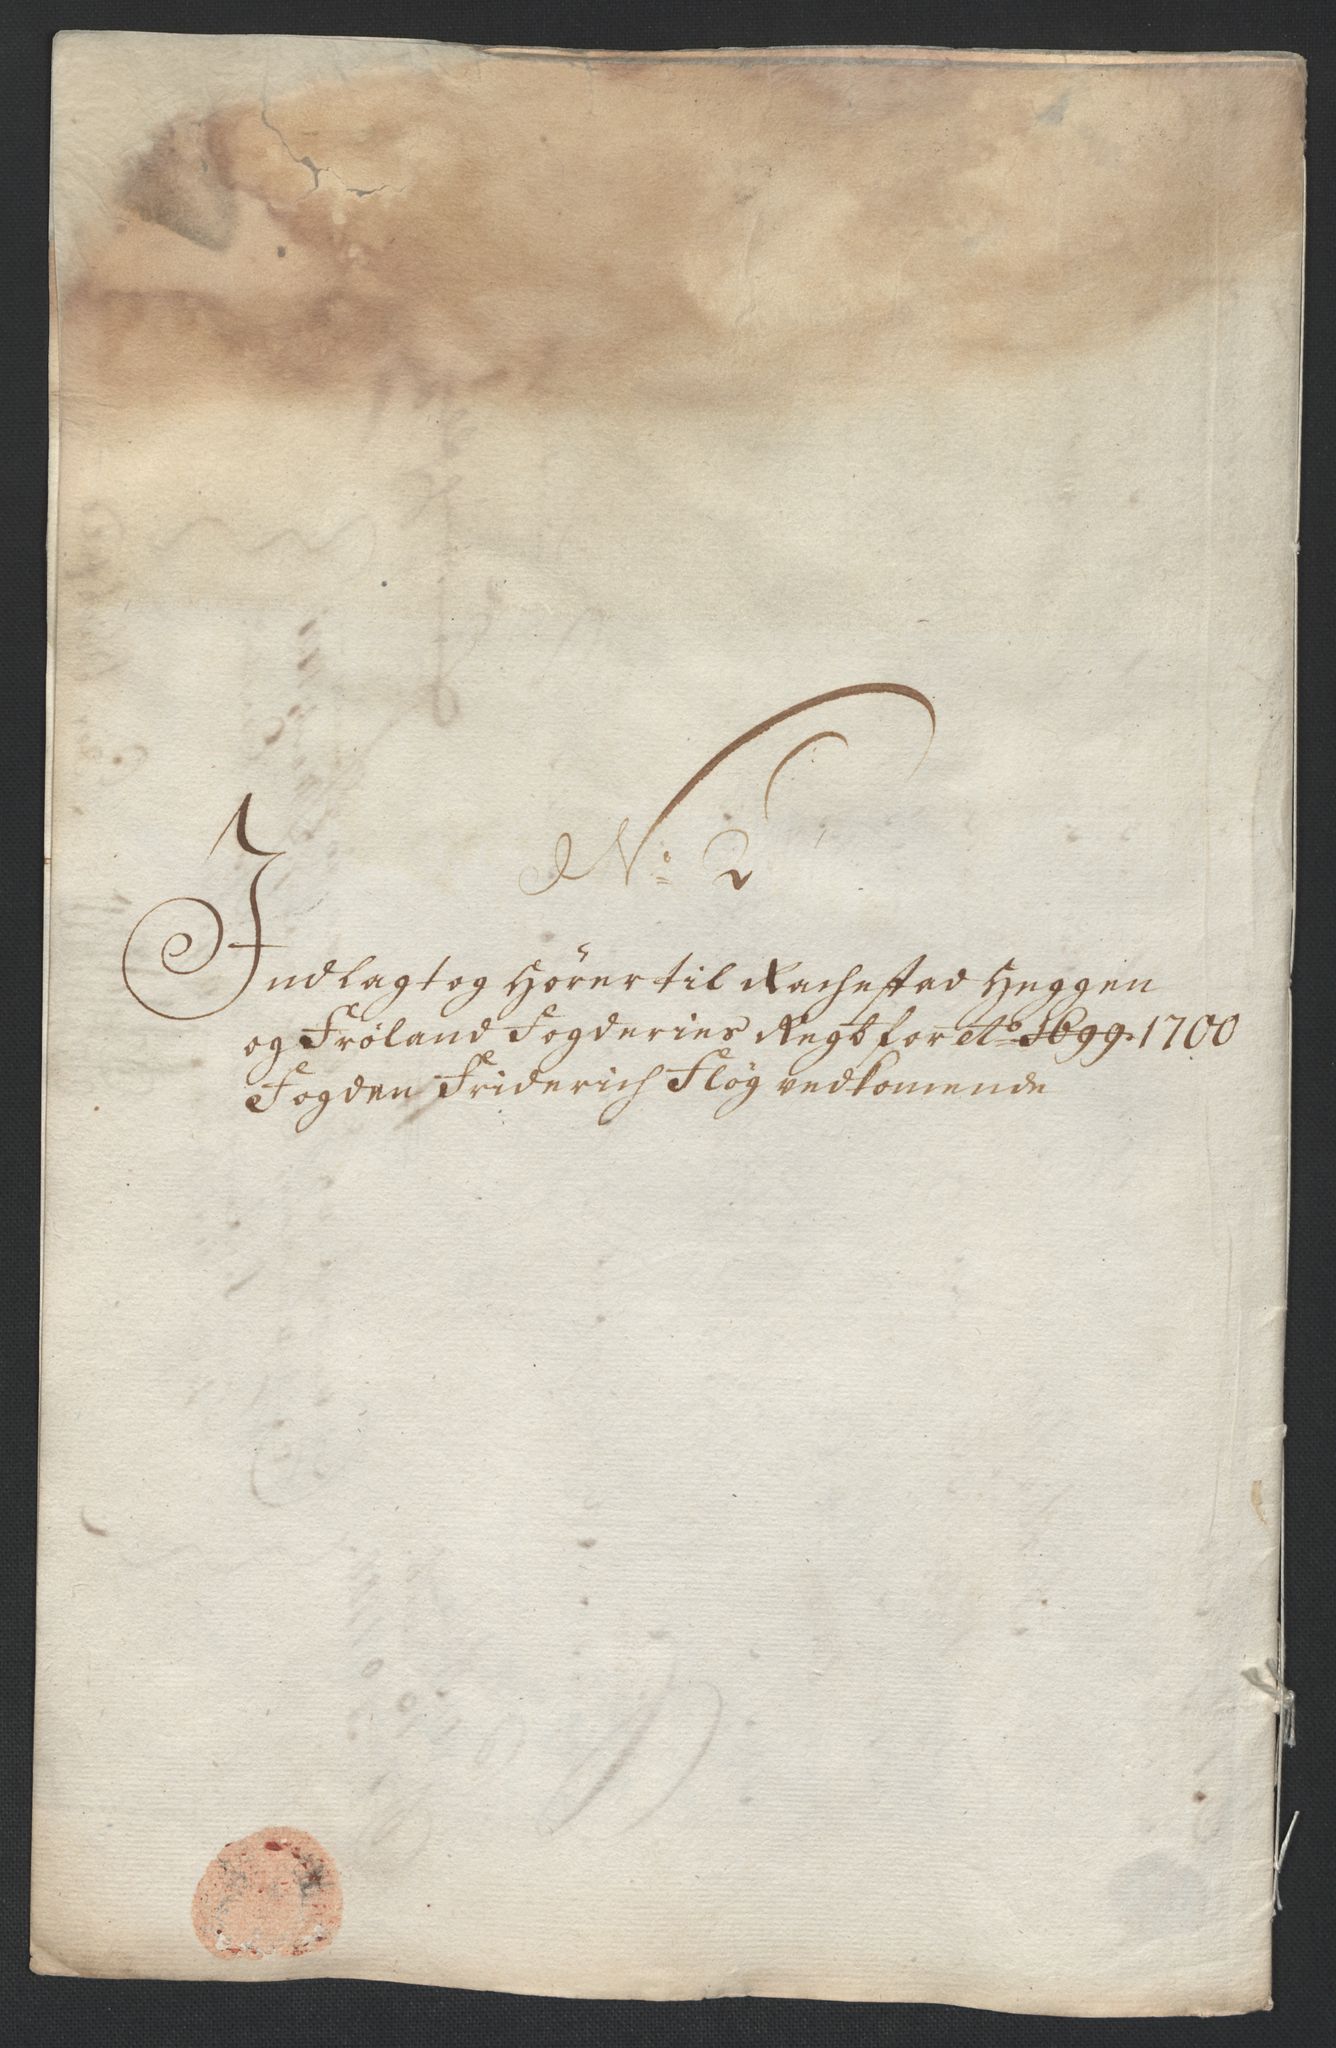 No: 2
Indlagt og Hører til Rachestad Heggen
og Frøland Fogderies Regsk for Ao 1699. 1700
Fogden Friderich Fløg vedkomende